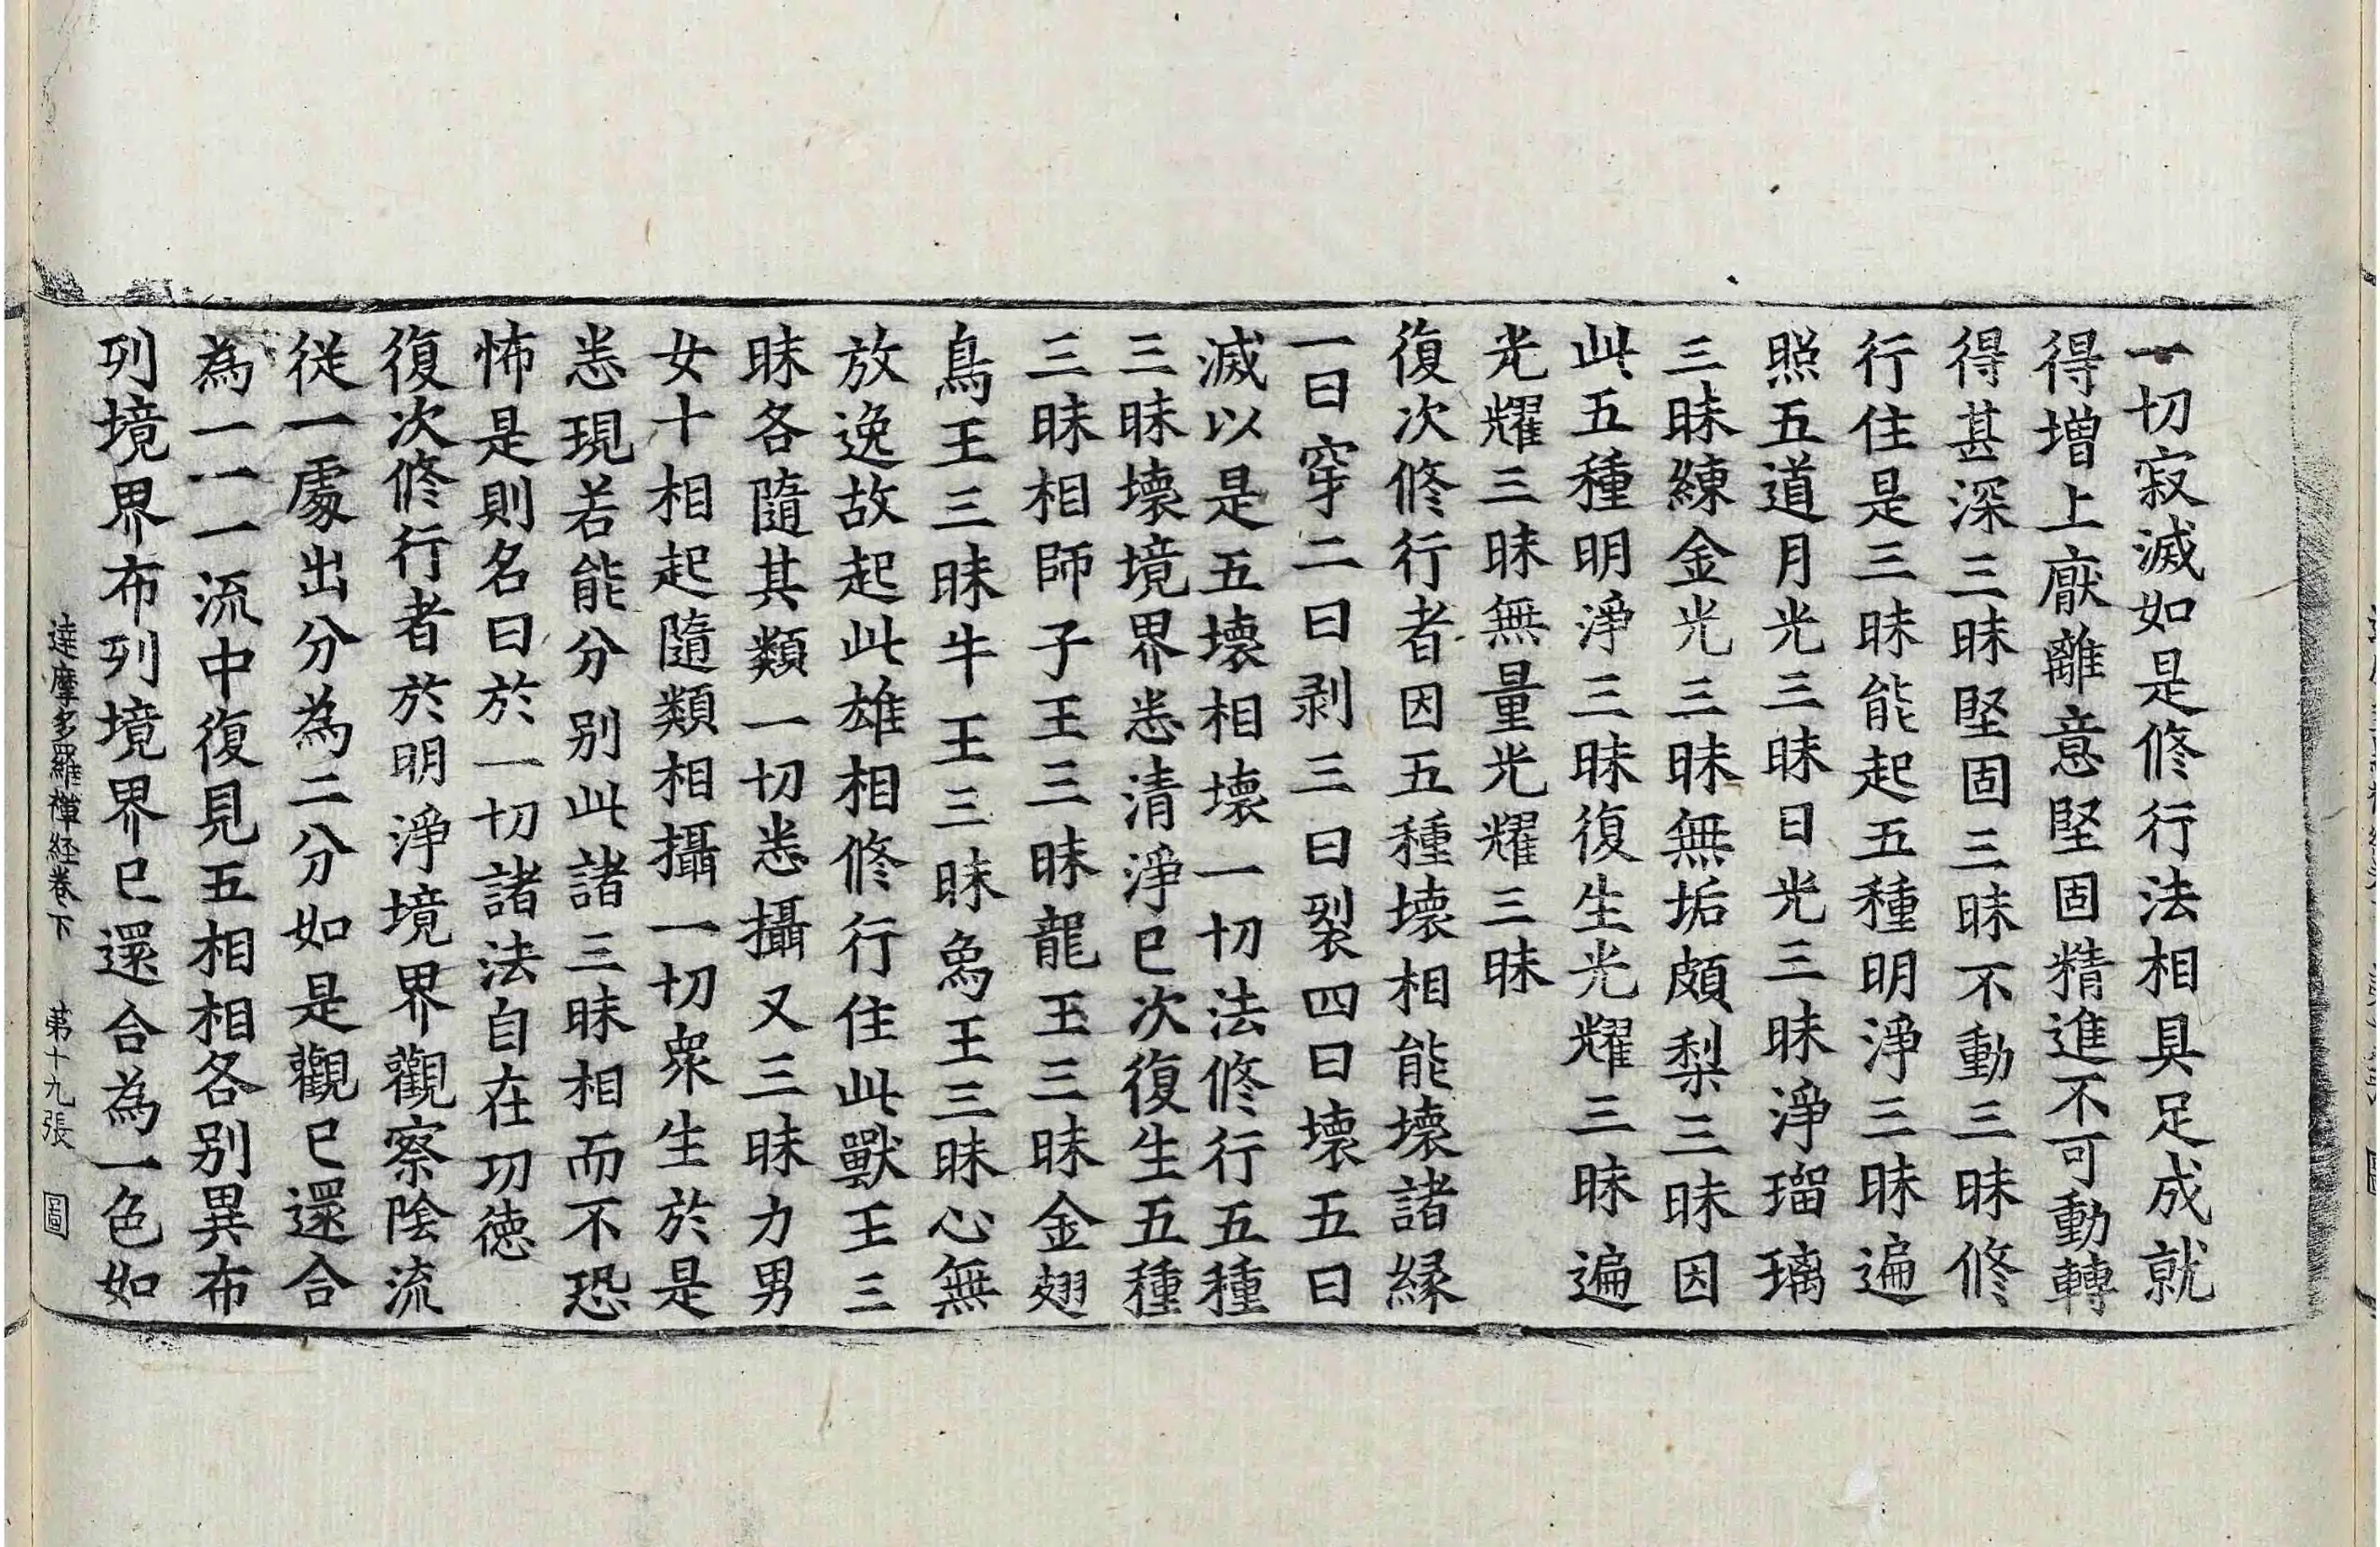 一切寂滅如是修行法相具足成就
得增上厭離意堅固精進不可動轉
得甚深三昧堅固三昧不動三昧修
行住是三昧能起五種明淨三昧遍
照五道月光三昧日光三昧淨瑠璃
三昧練金光三昧無垢頗梨三昧因
此五種明淨三昧復生光耀三昧遍
光耀三昧無量光耀三昧
復次修行者因五種壞相能壞諸縁
一曰穿二曰剥三曰裂四曰壞五曰
滅以是五壞相壞一切法修行五種
三昧壞境界悉清淨已次復生五種
三昧相師子王三昧龍王三昧金翅
鳥王三昧牛王三昧象王三昧心無
放逸故起此雄相修行住此獸王三
昧各隨其類一切悉攝又三昧力男
女十相起隨類相攝一切衆生於是
悉現若能分别此諸三昧相而不恐
怖是則名曰於一切諸法自在功徳
復次修行者於明淨境界觀察陰流
從一處出分為二分如是觀已還合
為一一一流中復見五相相各别異布
列境界布列境界已還合為一色如
達摩多羅禅経卷下 第十九張 圖